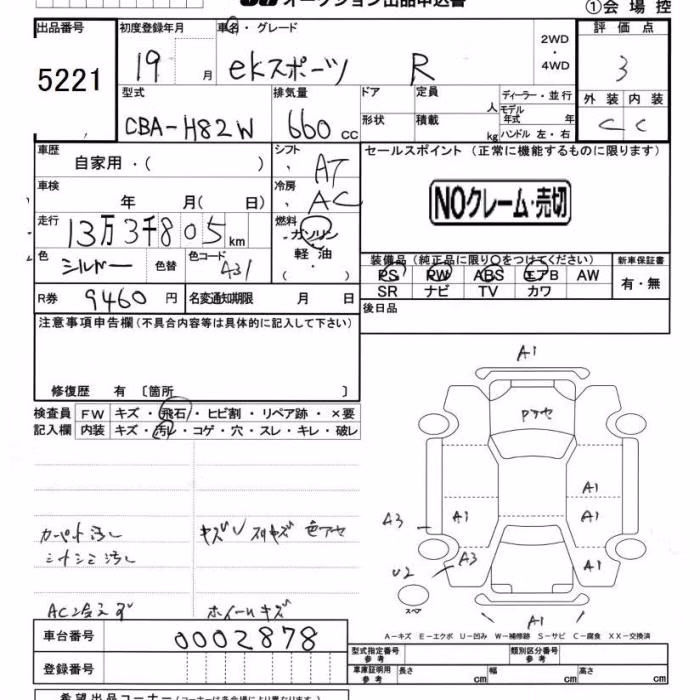 オークション出品申込書
①会場控
出品番号 初度登録年月 車名・グレード 2WD・4WD 評価点
5221 19 月 ekスポーツ R 3
型式 排気量 ドア 定員 人 ディーラー・並行 外装 内装
CBA-H82W 660 cc 形状 積載 kg モデル年式 年 ハンドル 左・右 C C
車歴 自家用・( ) シフト AT セールスポイント (正常に機能するものに限ります)
車検 年 月( 日) 冷房 AC NOクレーム・売切
走行 13万3千805 km 燃料 ガソリン・軽油・( )
色 シルバー 色替 色コード A31 装備品(純正品に限り○をつけてください) 新車保証書
PS PW ABS エアB AW 有・無
R券 9460 円 名変通知期限 月 日 SR ナビ TV カワ
注意事項申告欄(不具合内容等は具体的に記入して下さい) 後日品
修復歴 有 〔箇所 〕
検査員 FW キズ・飛石・ヒビ割・リペア跡・×要
記入欄 内装 キズ・汚れ・コゲ・穴・スレ・キレ・破レ
A1
A1
A3 A1 A1
U2 A3 A1
スペア
A1
カーペット汚れ キズU スリキズ 色アセ
シートシミ汚れ
AC冷えず ホイールキズ
A-キズ E-エクボ U-凹み W-補修跡 S-サビ C-腐食 XX-交換済
車台番号 0002878 型式指定番号 参考 類別区分番号 参考
登録番号 車庫証明用 参考 長さ cm 幅 cm 高さ cm
希望出品コーナー(コーナーは各会場により異なります)